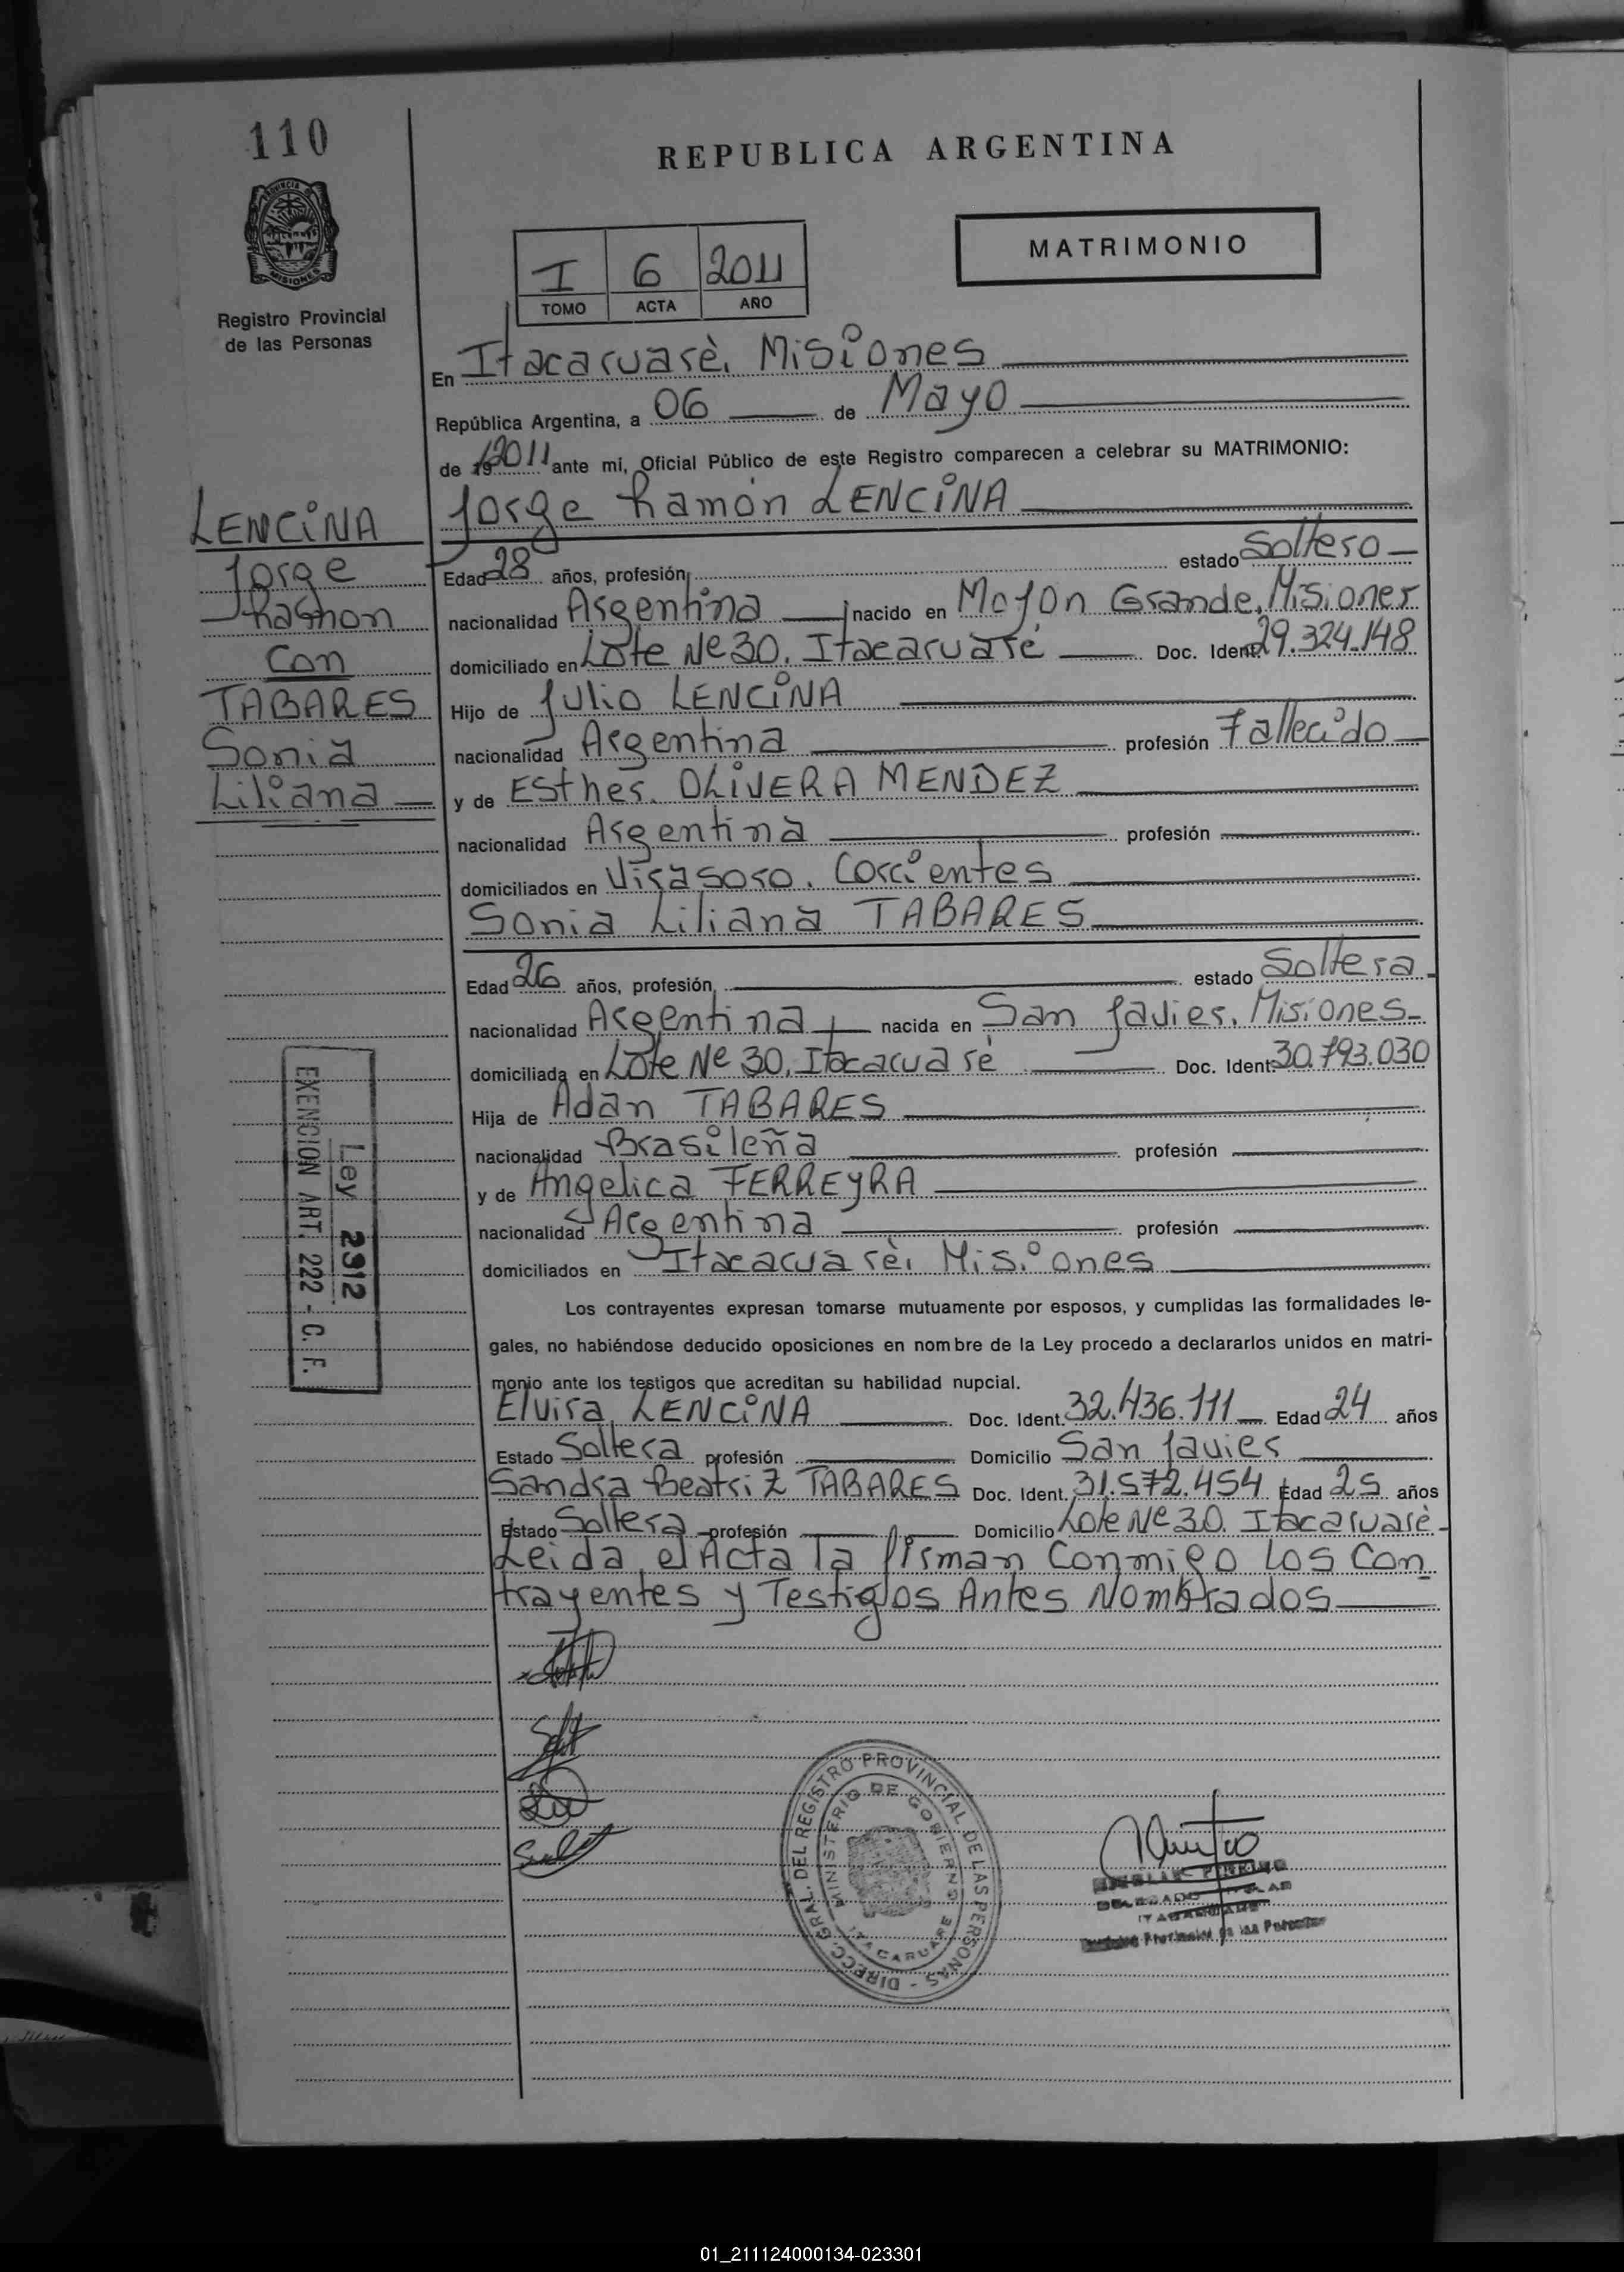 110
REPUBLICA ARGENTINA
MATRIMONIO
PROVINCIA DE
MISIONES
Registro Provincial
de las Personas
I 6 2011
TOMO ACTA AÑO
En Itacaruarè, Misiones
República Argentina, a 06 de Mayo
de 19 2011 ante mi, Oficial Público de este Registro comparecen a celebrar su MATRIMONIO:
Jorge Ramón LENCINA
LENCINA
Jorge
Ramon
Con
TABARES
Sonia
Liliana
Edad 28 años, profesión estado Soltero
nacionalidad Argentina nacido en Mojon Grande, Misiones
domiciliado en Lote Nº 30, Itacaruaré Doc. Ident. 29.324.148
Hijo de Julio LENCINA
nacionalidad Argentina profesión Fallecido
y de Esther OLIVERA MENDEZ
nacionalidad Argentina profesión
domiciliados en Virasoro, Corrientes
Sonia Liliana TABARES
Edad 26 años, profesión, estado Soltera
nacionalidad Argentina nacida en San Javier, Misiones
domiciliada en Lote Nº 30, Itacaruaré Doc. Ident. 30.793.030
Hija de Adan TABARES
nacionalidad Brasileña profesión
y de Angelica FERREYRA
nacionalidad Argentina profesión
domiciliados en Itacaruarè, Misiones
Ley 2912
EXENCION ART. 222 - C. F.
Los contrayentes expresan tomarse mutuamente por esposos, y cumplidas las formalidades le-
gales, no habiéndose deducido oposiciones en nombre de la Ley procedo a declararlos unidos en matri-
monio ante los testigos que acreditan su habilidad nupcial.
Elvira LENCINA Doc. Ident. 32.436.111 Edad 24 años
Estado Soltera profesión Domicilio San Javier
Sandra Beatriz TABARES Doc. Ident. 31.572.454 Edad 25 años
Estado Soltera profesión Domicilio Lote Nº 30. Itacaruarè
Leida el Acta la firman Conmigo Los Con
trayentes y Testigos Antes Nombrados
DIRECC. GRAL. DEL REGISTRO PROVINCIAL DE LAS PERSONAS -
MINISTERIO DE GOBIERNO
ITACARUARE
01_211124000134-023301